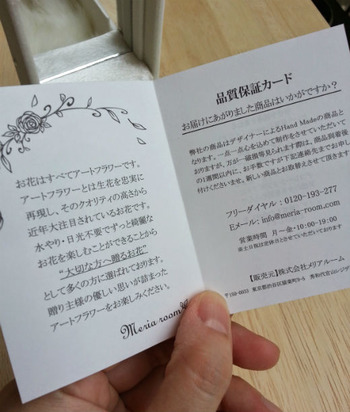 お花はすべてアートフラワーです。
アートフラワーとは生花を忠実に
再現し、そのクオリティの高さから
近年大注目されているお花です。
水やり・日光不要でずっと綺麗な
お花を楽しむことができることから
“大切な方へ贈るお花”
として多くの方に選ばれております。
贈り主様の優しい思いが詰まった
アートフラワーをお楽しみください。
Meria room
品質保証カード
お届けにあがりました商品はいかがですか？
弊社の商品はデザイナーによるHand Madeの商品と
なります。一点一点心を込めて制作をさせていただいて
おりますが、万が一破損等見られます際は、商品到着後
の1週間以内に、お手数ですが下記連絡先までお申し
付けくださいませ。新しい商品とお取替えさせて頂きます
フリーダイヤル：0120-193-277
Eメール：info@meria-room.com
営業時間 月-金・10:00-19:00
※土日祝は定休日とさせていただいております
【販売元】株式会社メリアルーム
東京都渋谷区